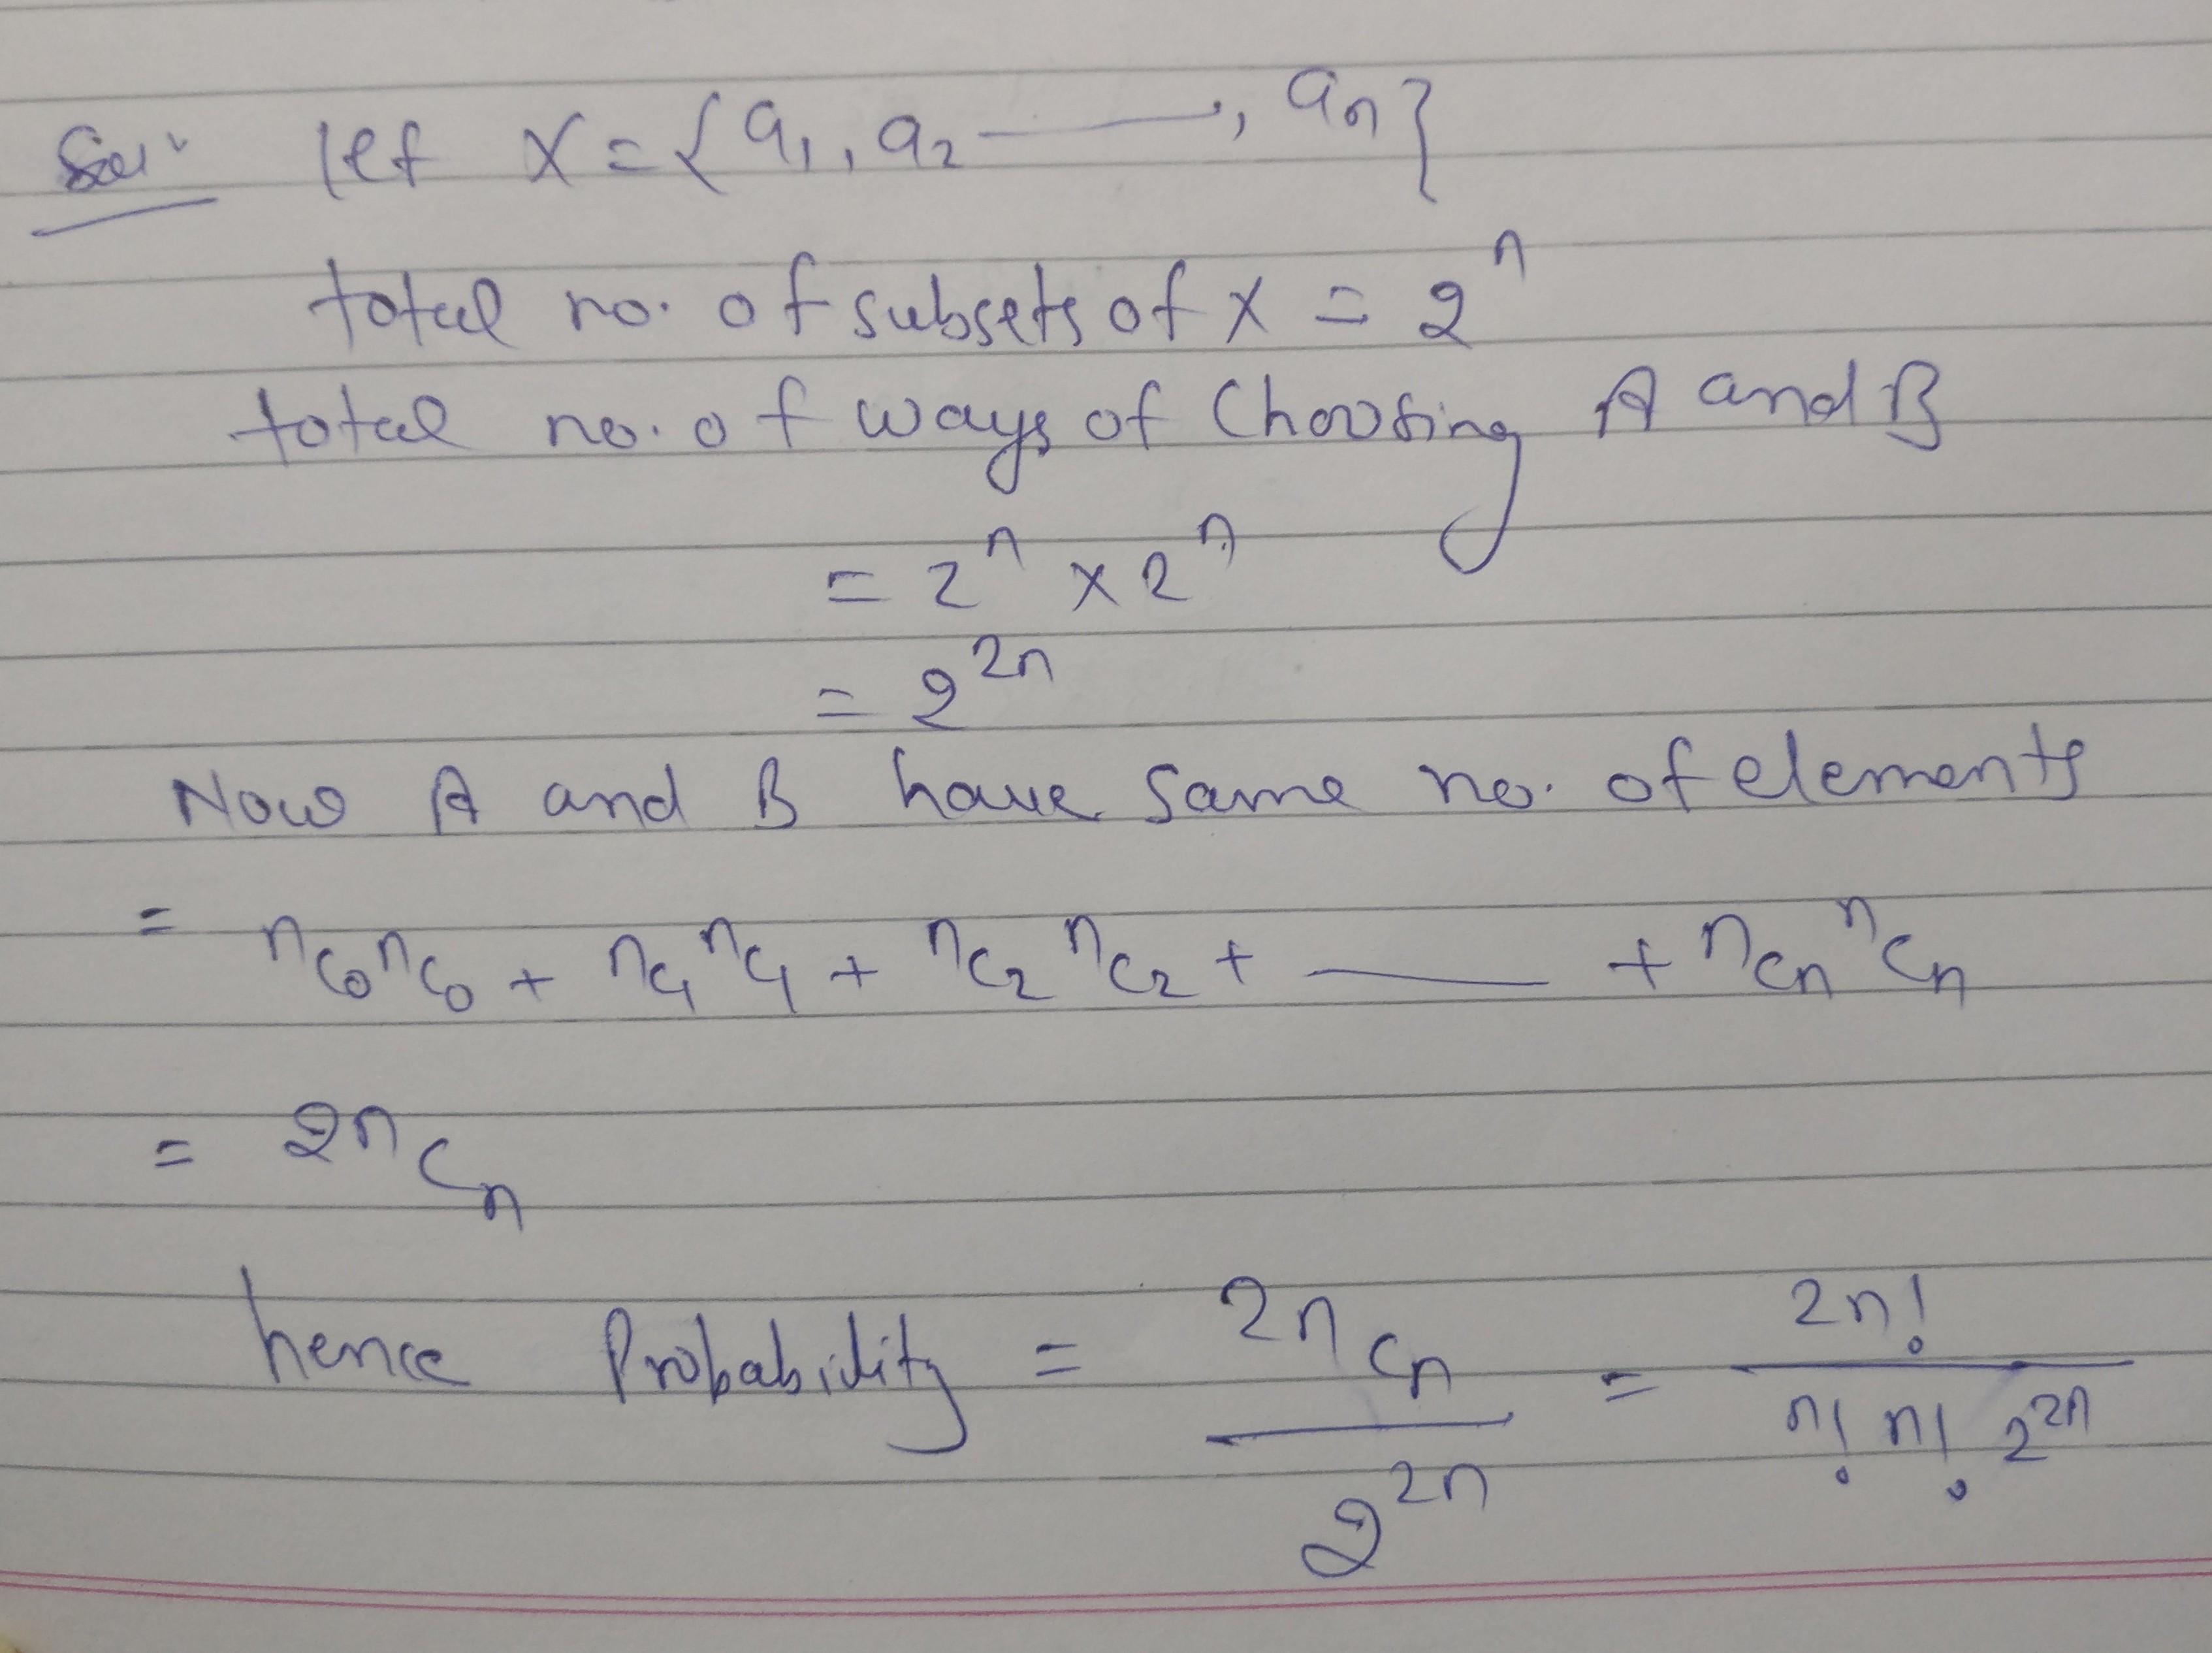 Sol. let X = {a₁, a₂ ——, aₙ}
total no. of subsets of X = 2ⁿ
total no. of ways of Choosing A and B
= 2ⁿ × 2ⁿ
= 2²ⁿ
Now A and B have same no. of elements
= ⁿC₀ ⁿC₀ + ⁿC₁ ⁿC₁ + ⁿC₂ ⁿC₂ + —— + ⁿCₙ ⁿCₙ
= ²ⁿCₙ
hence Probability = ²ⁿCₙ / 2²ⁿ = 2n! / n! n! 2²ⁿ